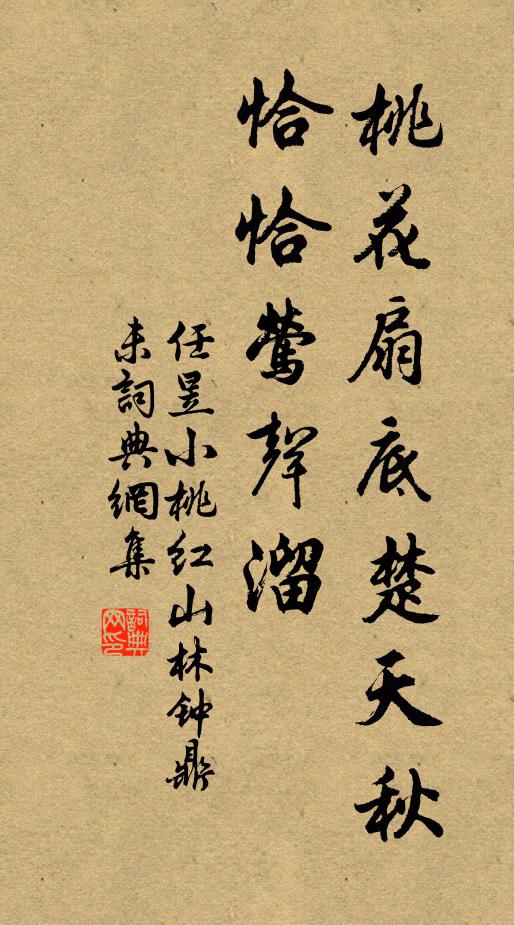 桃花扇底楚天秋
恰恰鶯聲溜
任昱小桃红山林钟鼎
未詞典網集
詞典网印